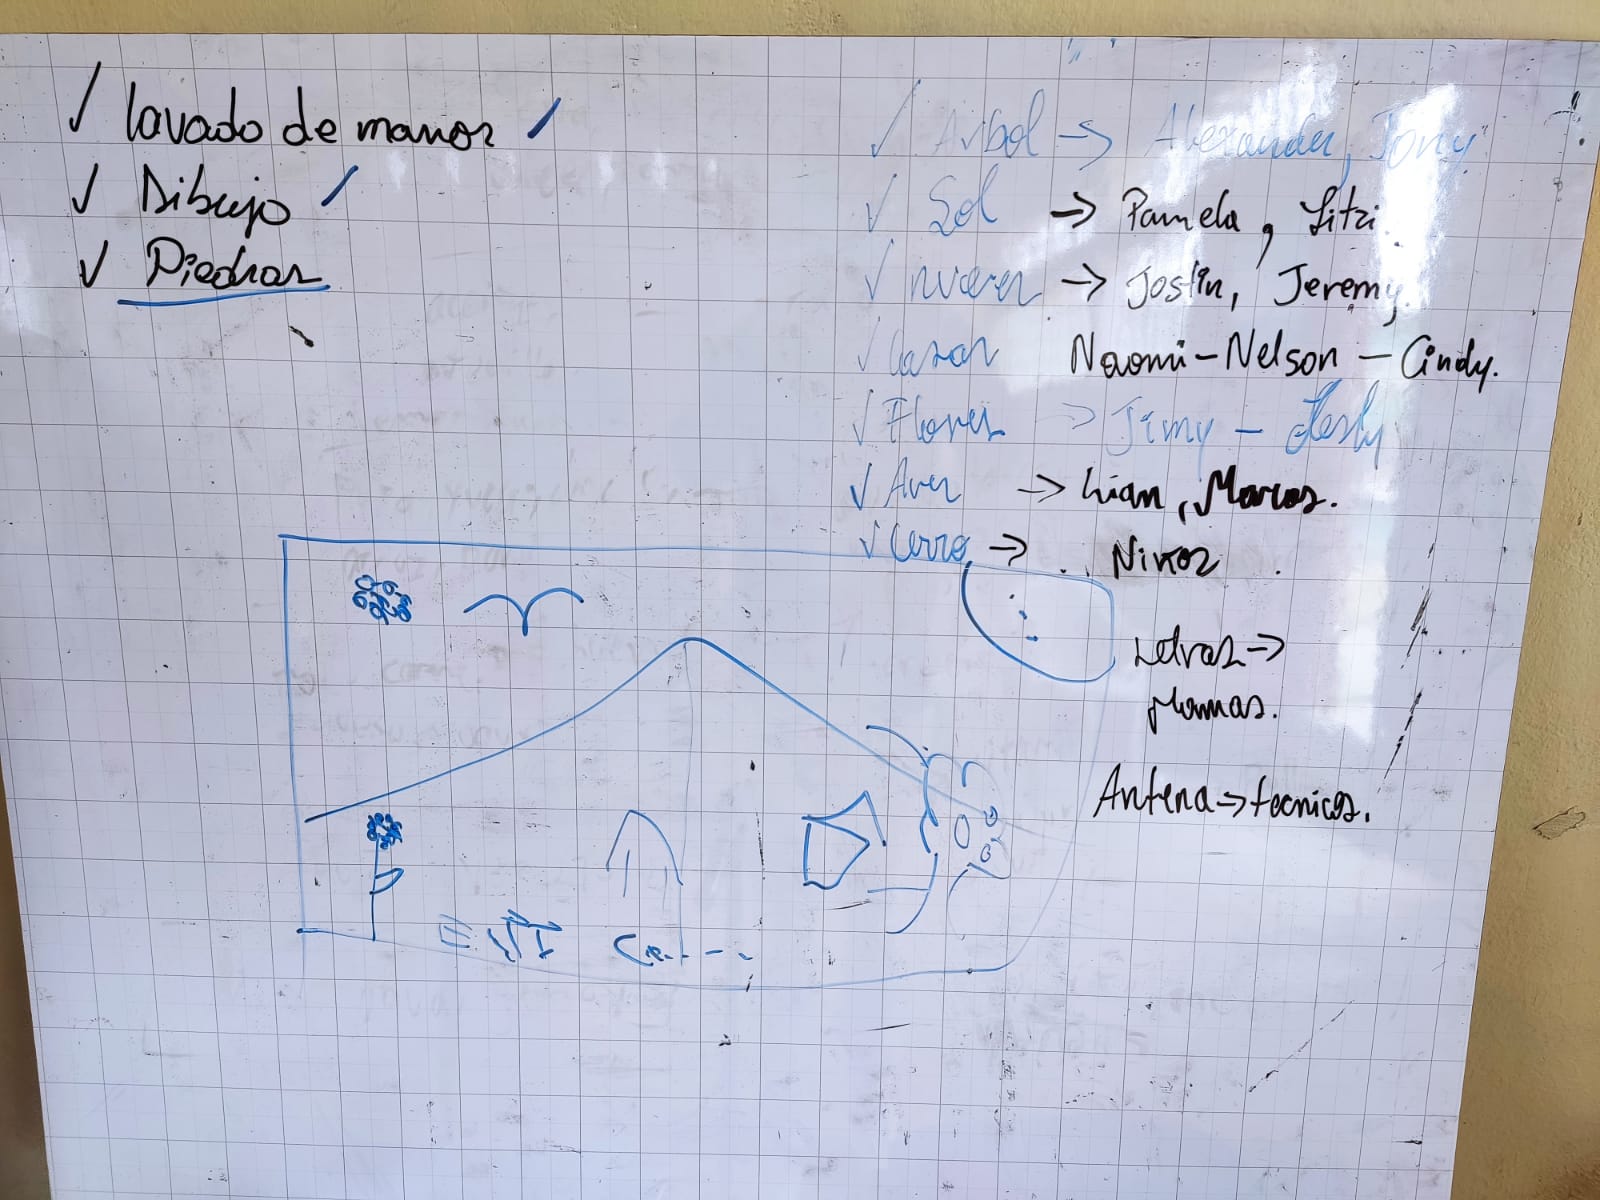 ✓ lavado de manos ✓
✓ Dibujo ✓
✓ Piedras
✓ Arbol → Alexander, Jony
✓ Sol → Pamela, Litzi
✓ nuves → Jostin, Jeremy.
✓ Casas Naomi - Nelson - Cindy.
✓ Flores → Jimy -
✓ Aves → Lian, Marcos.
✓ Cerro → Niños
Letras →
Mamas.
Antena → tecnicos.